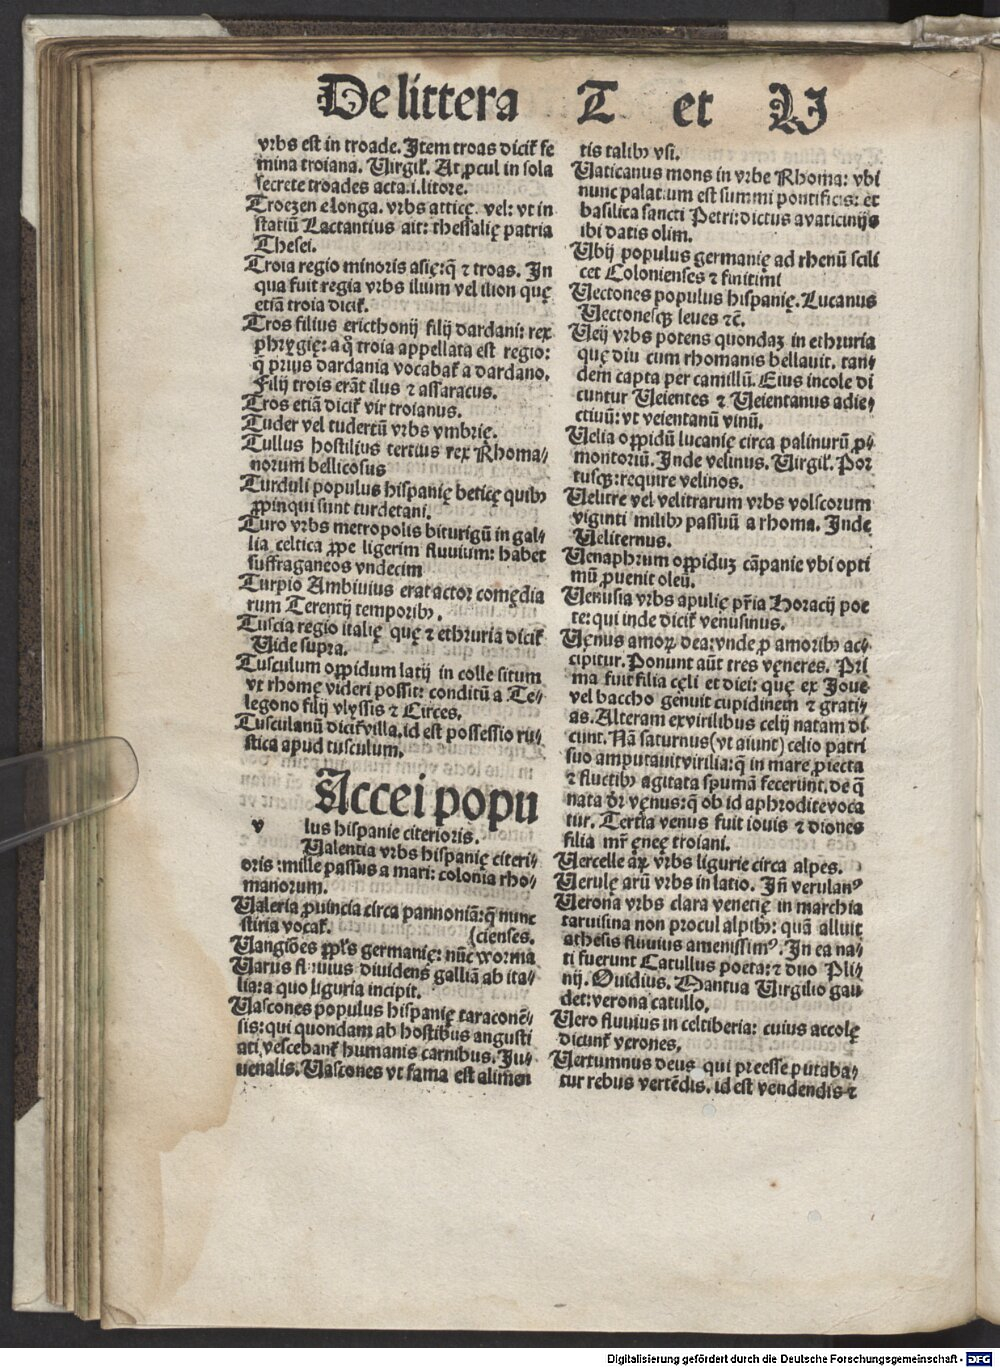 De littera T et U
vrbs est in troade. Item troas diciť fe
mina troiana. Uirgiľ. At ꝓcul in sola
secrete troades acta .i. litore.
Troezen e longa. vrbs atticę. vel: vt in
statiū Lactantius ait: thessalię patria
Thesei.
Troia regio minoris asię: q̄ ⁊ troas. In
qua fuit regia vrbs ilium vel ilion quę
etiā troia diciť.
Tros filius ericthonij filij dardani: rex
phrygię: a q̊ troia appellata est regio:
q̄ prius dardania vocabať a dardano.
Filij trois erāt ilus ⁊ assaracus.
Tros etiā diciť vir troianus.
Tuder vel tudertū vrbs vmbrię.
Tullus hostilius tertius rex Rhoma/
norum bellicosus
Turduli populus hispanię beticę quibꝫ
ꝓpinqui sunt turdetani.
Turo vrbs metropolis biturigū in gal/
lia celtica ꝓpe ligerim fluuium: habet
suffraganeos vndecim
Turpio Ambiuius erat actor comędia
rum Terentij temporibꝫ.
Tuscia regio italię quę ⁊ ethruria diciť
Uide supra.
Tusculum oppidum latij in colle situm
vt rhomę videri possit: conditū a Te/
legono filij vlyssis ⁊ Circes.
Tusculanū diciť villa. id est possessio ru/
stica apud tusculum.
v Accei popu
lus hispanie citerioris.
Ualentia vrbs hispanię citeri/
oris: mille passus a mari: colonia rho/
manorum.
Ualeria ꝓuincia circa pannoniā: q̄ nunc
stiria vocať. (cienses.
Uangiōes ppl's germanię: nūc worma
Uarus fluuius diuidens galliā ab ita/
lia: a quo liguria incipit.
Uascones populus hispanię taraconē/
sis: qui quondam ab hostibus angusti
ati vescebanť humanis carnibus. Iu/
uenalis. Uascones vt fama est alimen
tis talibꝫ vsi.
Uaticanus mons in vrbe Rhoma: vbi
nunc palatium est summi pontificis: et
basilica sancti Petri: dictus a vaticinijs
ibi datis olim.
Ubij populus germanię ad rhenū scili
cet Colonienses ⁊ finitimi
Uectones populus hispanię. Lucanus
Uectonesqꝫ leues ⁊c̄.
Ueij vrbs potens quondaꝫ in ethruria
quę diu cum rhomanis bellauit. tan/
dem capta per camillū. Eius incole di
cuntur Ueientes ⁊ Ueientanus adie/
ctiuū: vt veientanū vinū.
Uelia oppidū lucanię circa palinurū ꝓ/
montoriū. Inde velinus. Uirgiľ. Por
tusqꝫ: require velinos.
Uelitre vel velitrarum vrbs volscorum
viginti milibꝫ passuū a rhoma. Inde
Ueliternus.
Uenaphrum oppiduꝫ cāpanie vbi opti
mū ꝓuenit oleū.
Uenusia vrbs apulię pr̄ia Horacij poe
te: qui inde diciť venusinus.
Uęnus amoꝝ dea: vnde ꝓ amoribꝫ ac/
cipitur. Ponunt aūt tres vęneres. Pri
ma fuit filia cęli et diei: quę ex Ioue
vel baccho genuit cupidinem ⁊ grati/
as. Alteram ex virilibus celij natam di
cunt. Nā saturnus (vt aiunt) celio patri
suo amputauit virilia: q̄ in mare ꝓiecta
⁊ fluctibꝫ agitata spumā fecerunt. de q̄
nata dr̄ vęnus: q̄ ob id aphrodite voca
tur. Tertia venus fuit iouis ⁊ diones
filia mr̄ ęneę troiani.
Uercelle aꝝ vrbs ligurie circa alpes.
Uerulę arū vrbs in latio. Iñ verulanꝰ
Uerona vrbs clara venetię in marchia
taruisina non procul alpibꝫ: quā alluit
athesis fluuius amenissimꝰ. In ea na/
ti fuerunt Catullus poeta: ⁊ duo Pli/
nij. Ouidius. Mantua Uirgilio gau/
det: verona catullo.
Uero fluuius in celtiberia: cuius accolę
dicunť verones.
Uertumnus deus qui preesse putaba/
tur rebus vertēdis. id est vendendis ⁊
Digitalisierung gefördert durch die Deutsche Forschungsgemeinschaft - DFG